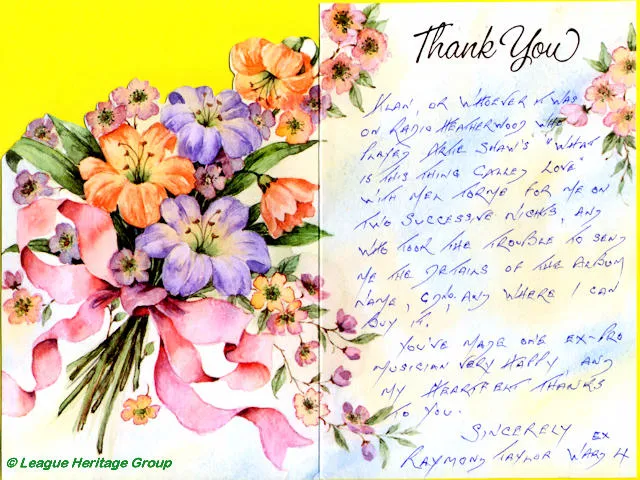 Thank You
ALAN, OR WHOEVER IT WAS
ON RADIO HEATHERWOOD WHO
PLAYED ARTIE SHAW'S "WHAT
IS THIS THING CALLED LOVE"
WITH MEL TORME FOR ME ON
TWO SUCCESSIVE NIGHTS, AND
WHO TOOK THE TROUBLE TO SEND
ME THE DETAILS OF THE ALBUM
NAME, C/NO, AND WHERE I CAN
BUY IT.
YOU'VE MADE ONE EX-PRO
MUSICIAN VERY HAPPY, AND
MY HEARTFELT THANKS
TO YOU.
SINCERELY
RAYMOND TAYLOR EX WARD 4
© League Heritage Group